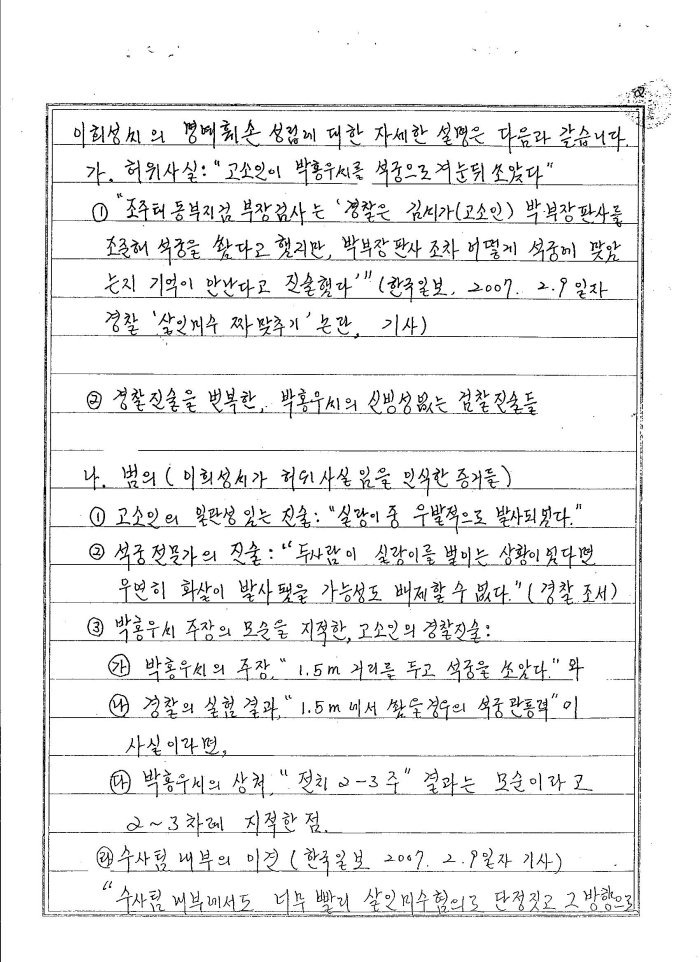 이희성씨의 명예훼손 성립에 대한 자세한 설명은 다음과 같습니다.
가. 허위사실: "고소인이 박홍우씨를 석궁으로 겨눈뒤 쏘았다"
① "조주태 동부지검 부장검사는 '경찰은 김씨가(고소인) 박부장판사를
조준해 석궁을 쐈다고 했지만, 박부장판사 조차 어떻게 석궁에 맞았
는지 기억이 안난다고 진술했다'" (한국일보, 2007. 2. 9일자
경찰 '살인미수 짜맞추기' 논란, 기사)
② 경찰진술을 번복한, 박홍우씨의 신빙성없는 검찰진술들
나. 범의 (이희성씨가 허위사실임을 인식한 증거들)
① 고소인의 일관성 있는 진술: "실랑이 중 우발적으로 발사되었다."
② 석궁전문가의 진술: "두사람이 실랑이를 벌이는 상황이었다면
우연히 화살이 발사됐을 가능성도 배제할 수 없다." (경찰 조서)
③ 박홍우씨 주장의 모순을 지적한, 고소인의 경찰진술:
㉮ 박홍우씨의 주장, "1.5m 거리를 두고 석궁을 쏘았다." 와
㉯ 경찰의 실험 결과, "1.5m에서 쐈을경우의 석궁관통력"이
사실이라면,
㉰ 박홍우씨의 상처, "전치 2-3주" 결과는 모순이라고
2~3차례 지적한 점.
㉱ 수사팀 내부의 이견 (한국일보 2007. 2. 9일자 기사)
"수사팀 내부에서도 너무 빨리 살인미수혐의로 단정짓고 그 방향으로